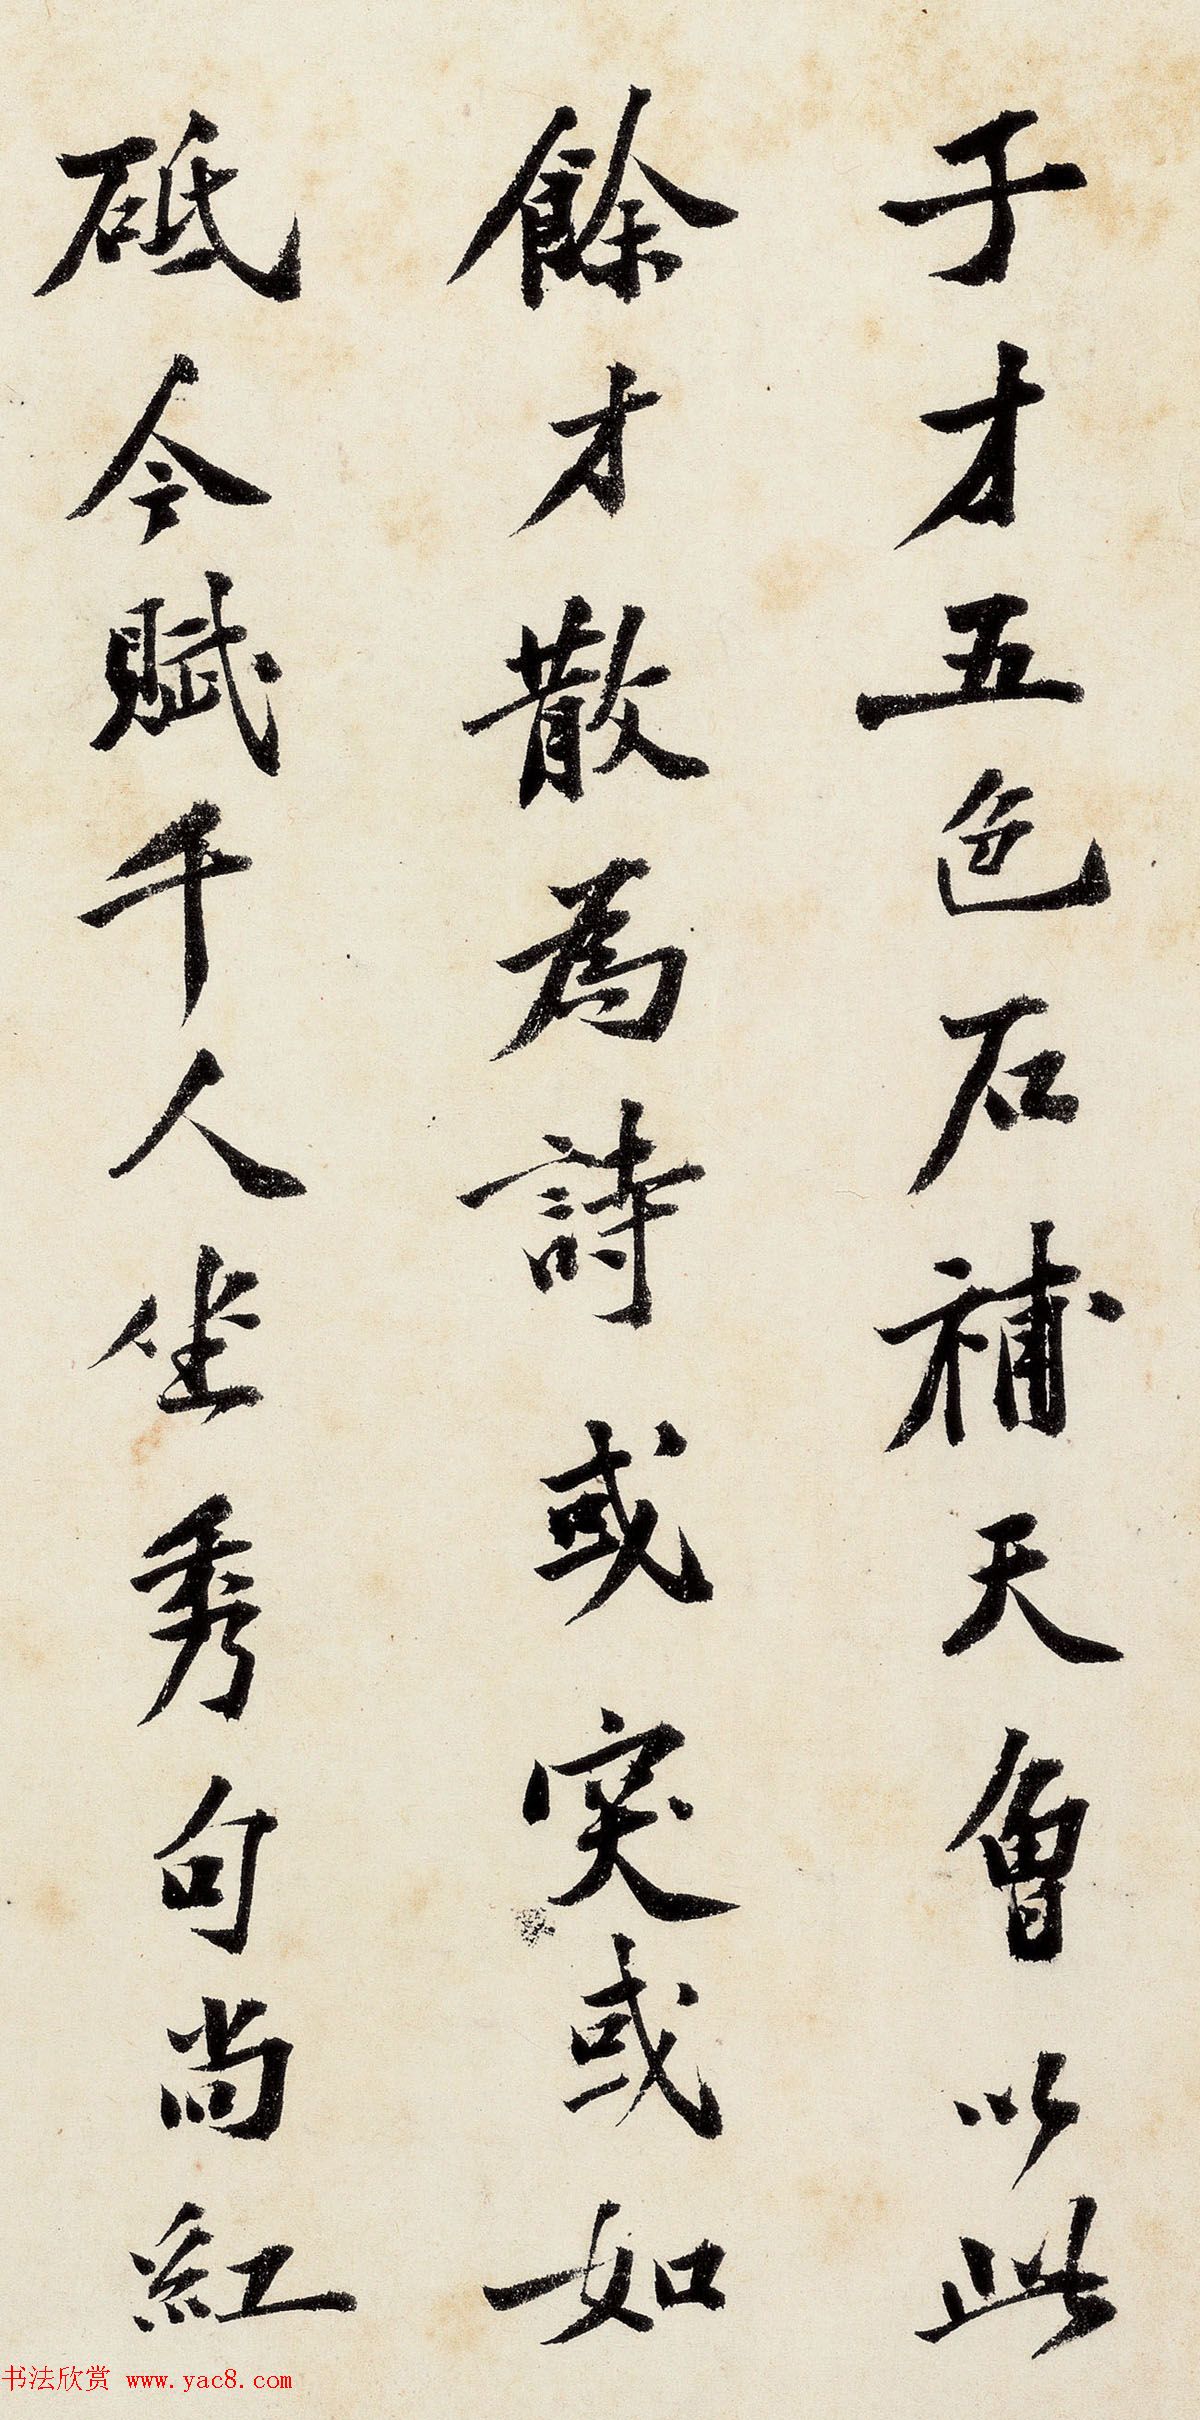 子才五色石補天會以此
餘才散為詩或突或如
砥今賦千人坐秀句尚紅
书法欣赏 www.yac8.com